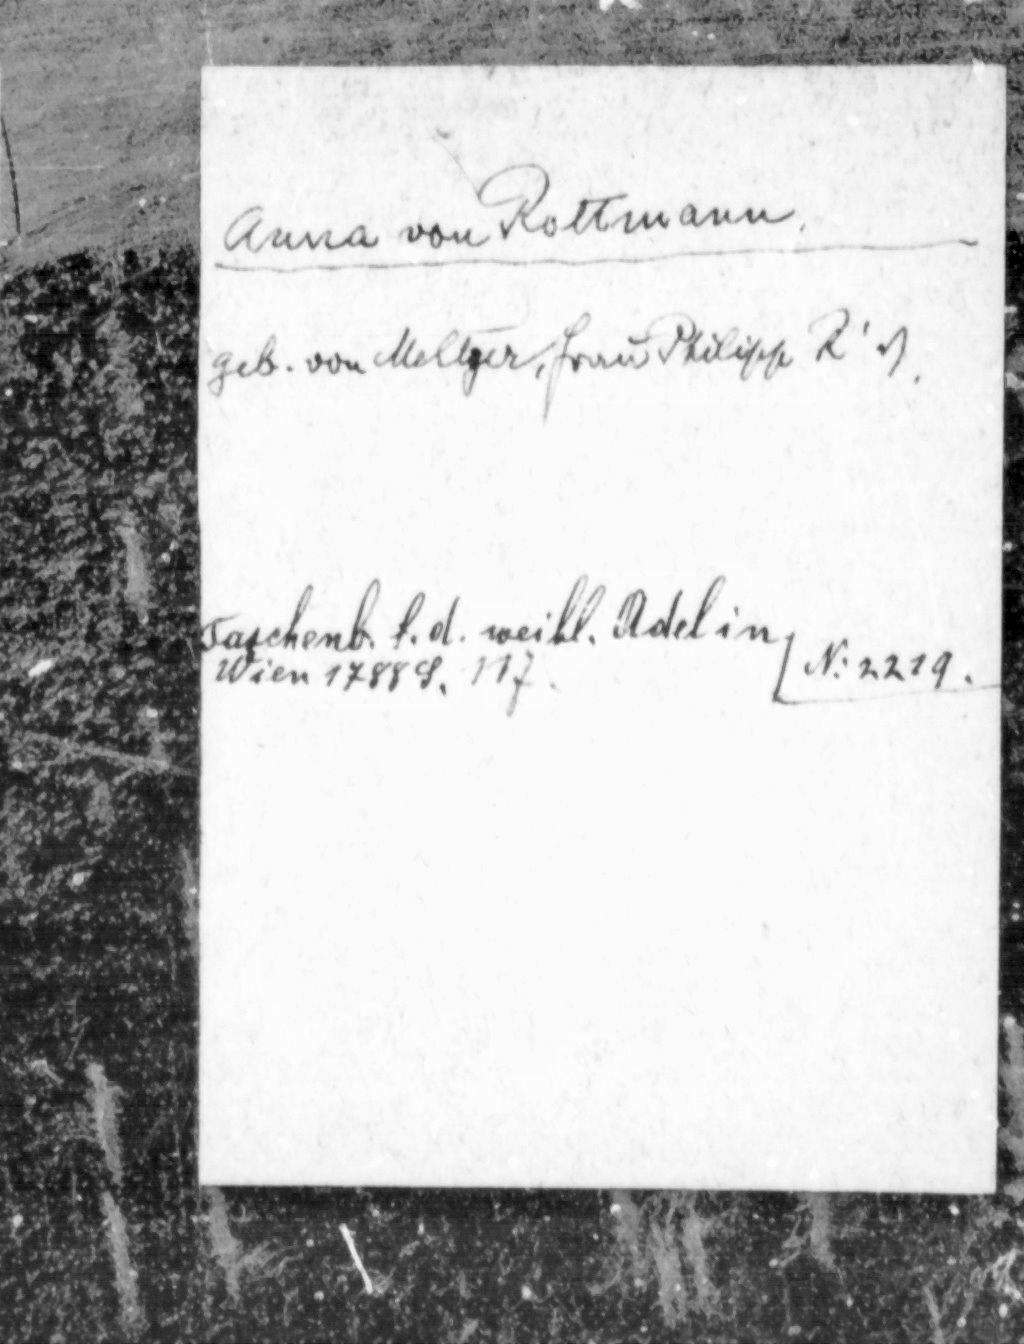 Anna von Rottmann.
geb. von Meltzer, Frau Philipp R's.
Taschenb. f. d. weibl. Adel in
Wien 1788 S. 117.
N: 2219.